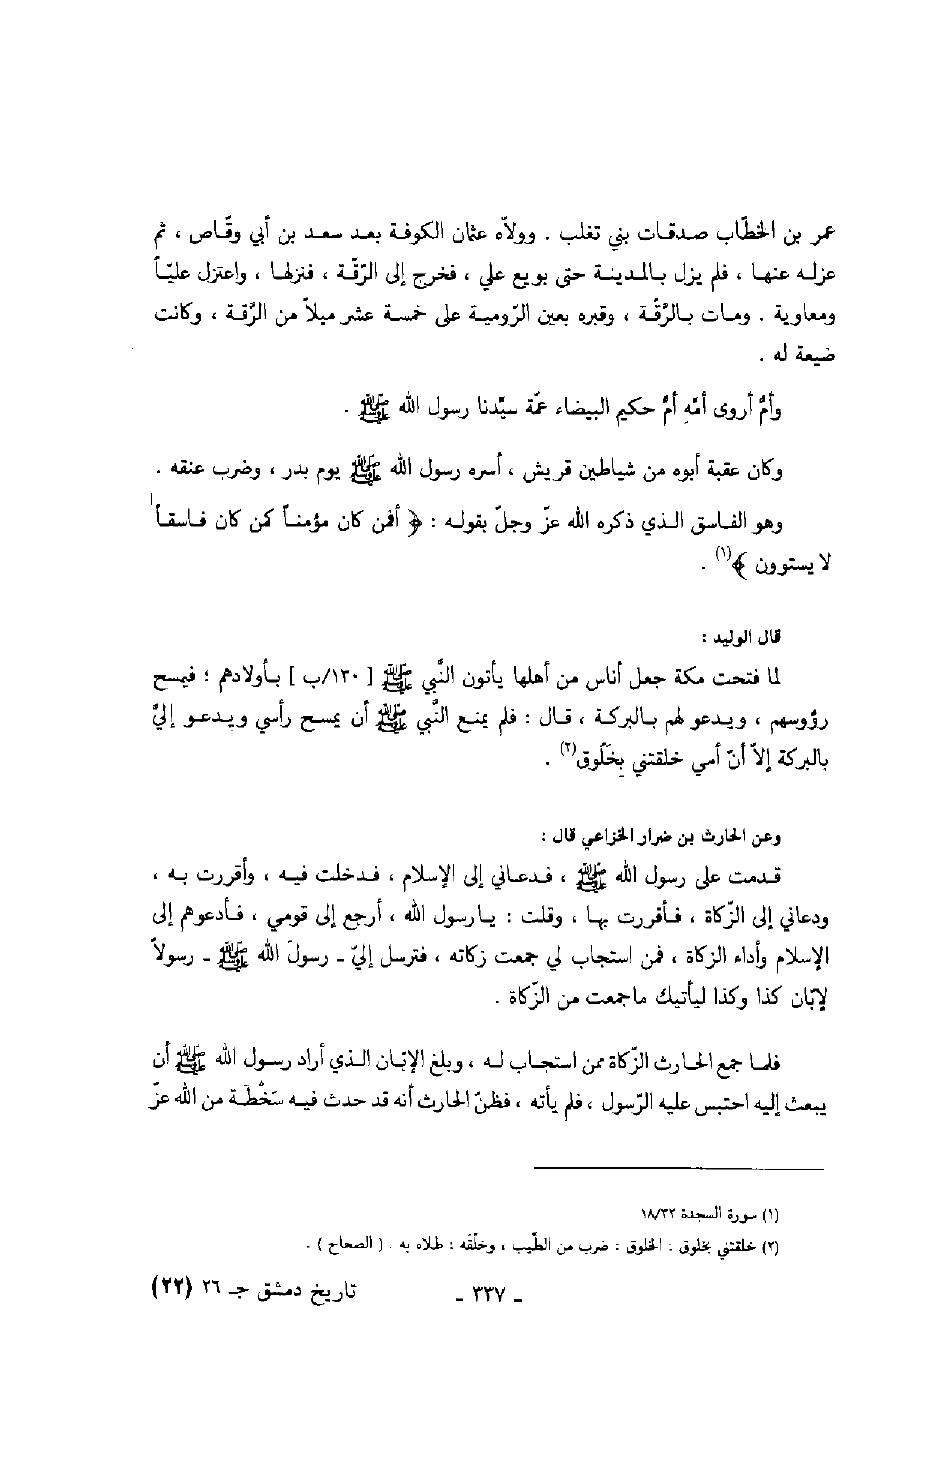 عمر بن الخطّاب صدقات بني تغلب . وولاّه عثمان الكوفة بعد سعد بن أبي وقّاص ، ثم
عزله عنها ، فلم يزل بالمدينة حتى بويع علي ، فخرج إلى الرّقّة ، فنزلها ، واعتزل عليّاً
ومعاوية . ومات بالرَّقّة ، وقبره بعين الرّومية على خمسة عشر ميلاً من الرَّقة ، وكانت
ضيعة له .
وأمُّ أروى أمّه أمُّ حكيم البيضاء عمّة سيّدنا رسول الله ﷺ .
وكان عقبة أبوه من شياطين قريش ، أسره رسول الله ﷺ يوم بدر ، وضرب عنقه .
وهو الفاسق الذي ذكره الله عزّ وجلّ بقوله : ﴿ أفمن كان مؤمناً كمن كان فاسقاً
لا يستوون ﴾(١) .
قال الوليد :
لما فتحت مكة جعل أناس من أهلها يأتون النَّبي ﷺ [ ١٣٠/ب ] بأولادهم ؛ فيمسح
رؤوسهم ، ويدعو لهم بالبركة ، قال : فلم يمنع النَّبي ﷺ أن يمسح رأسي ويدعو إليَّ
بالبركة إلاّ أنّ أمي خلقتني بِخَلُوق(٢) .
وعن الحارث بن ضرار الخزاعي قال :
قدمت على رسول الله ﷺ ، فدعاني إلى الإسلام ، فدخلت فيه ، وأقررت به ،
ودعاني إلى الزّكاة ، فأقررت بها ، وقلت : يارسول الله ، أرجع إلى قومي ، فأدعوهم إلى
الإسلام وأداء الزكاة ، فمن استجاب لي جمعت زكاته ، فترسل إليّ ـ رسولَ الله ﷺ ـ رسولاً
لإبّان كذا وكذا ليأتيك ماجمعت من الزّكاة .
فلما جمع الحارث الزّكاة ممن استجاب له ، وبلغ الإبّان الذي أراد رسول الله ﷺ أن
يبعث إليه احتبس عليه الرّسول ، فلم يأته ، فظنّ الحارث أنه قد حدث فيه سَخْطَة من الله عزّ
(١) سورة السجدة ١٨/٣٢
(٢) خلقتني بخلوق : الخلوق : ضرب من الطّيب ، وخلّقه : طلاه به . ( الصحاح ) .
ـ ٣٣٧ ـ تاريخ دمشق جـ ٢٦ (٢٢)